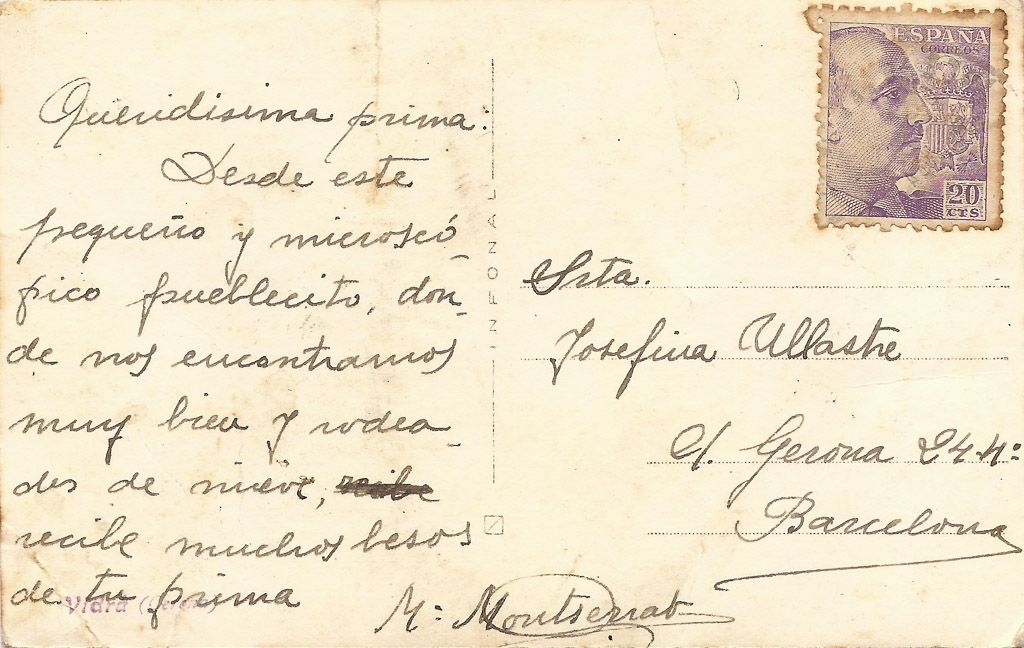 Queridisima prima:
Desde este
pequeño y microscó-
pico pueblecito, don-
de nos encontramos
muy bien y rodea-
dos de nieve, recibe
recibe muchos besos
de tu prima
Mª Montserrat
Vidrá
INFONAL
ESPAÑA
CORREOS
20
CTS
Srta.
Josefina Ullastre
c/. Gerona 24 4º
Barcelona